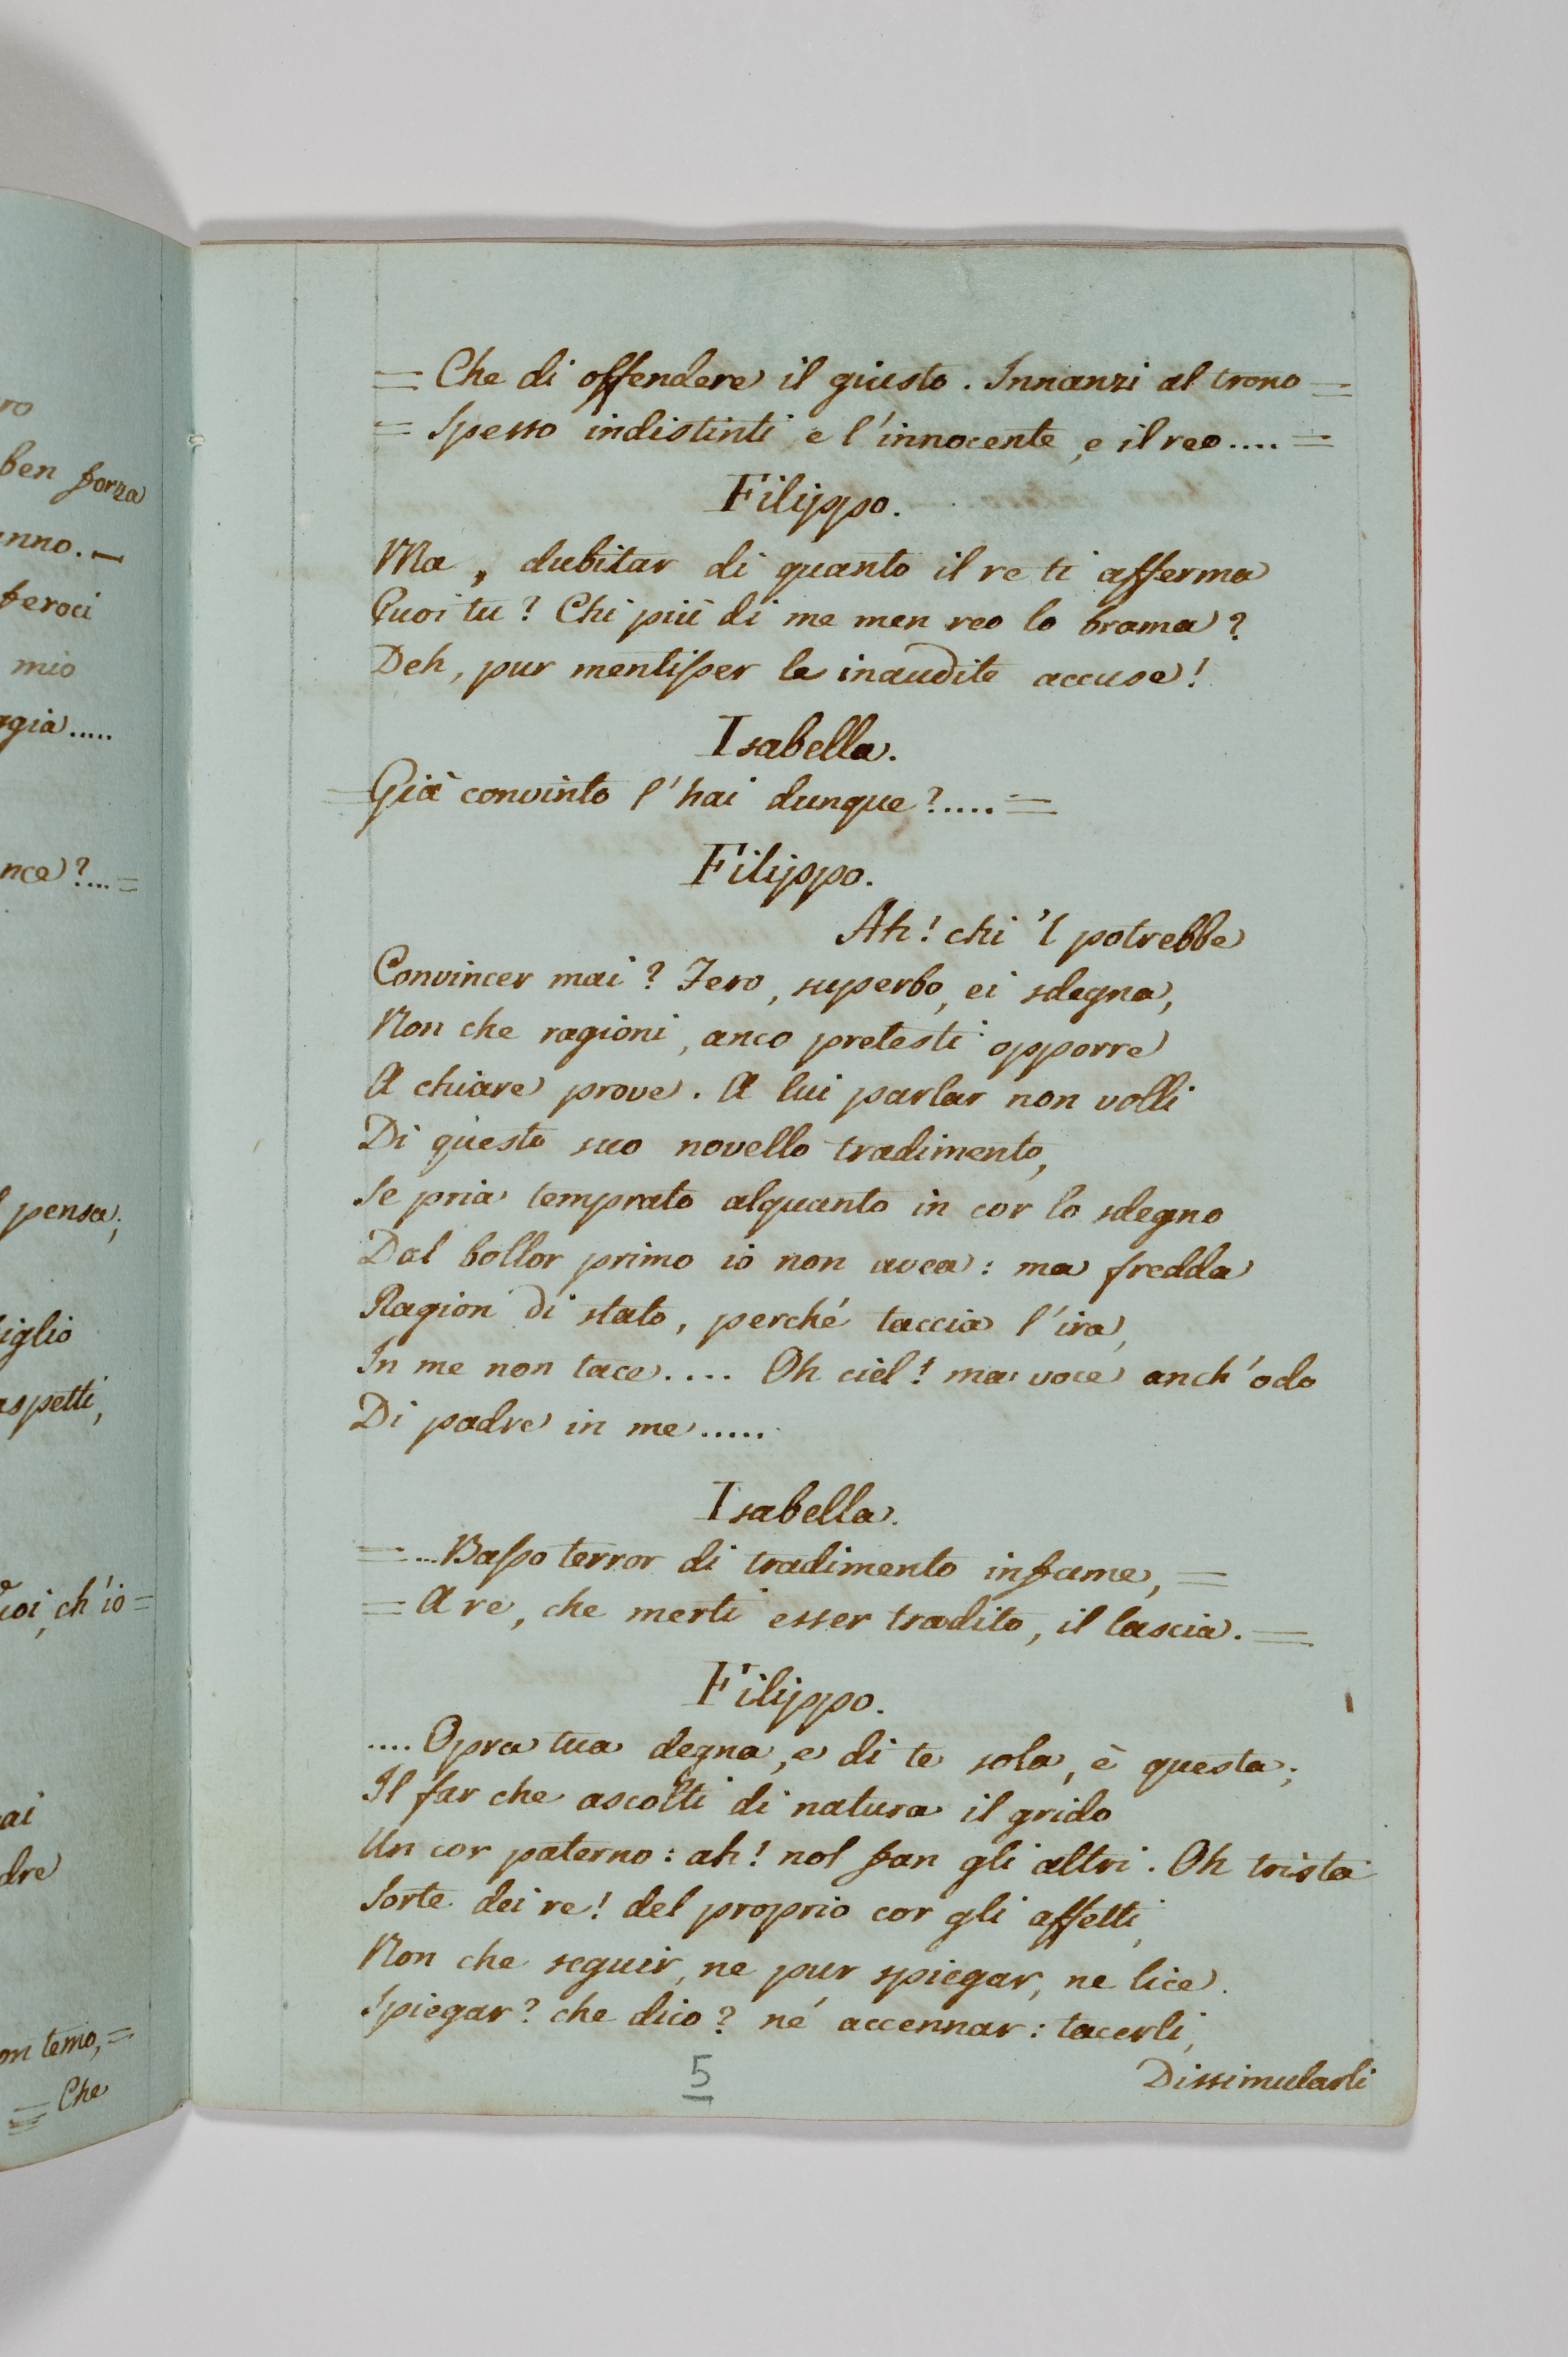 ro
ben forza
anno. —
feroci
mio
gia.....
nce?... =
pensa;
iglio
aspetti,
ch'io =
ai
dre
temo, =
= Che
= Che di offendere il giusto. Innanzi al trono =
= Spesso indistinti e l'innocente, e il reo.... =
Filippo.
Ma, dubitar di quanto il re ti afferma
Puoi tu? Chi più di me men reo lo brama?
Deh, pur mentisser le inaudite accuse!
Isabella.
= Già convinto l'hai dunque?.... =
Filippo.
Ah! chi 'l potrebbe
Convincer mai? Fero, superbo, ei sdegna,
Non che ragioni, anco pretesti opporre
A chiare prove. A lui parlar non volli
Di questo suo novello tradimento,
Se pria temprato alquanto in cor lo sdegno
Dal bollor primo io non avea: ma fredda
Ragion di stato, perché taccia l'ira,
In me non tace.... Oh ciel! ma voce anch'odo
Di padre in me.....
Isabella.
= ... Basso terror di tradimento infame, =
= A re, che merti esser tradito, il lascia. =
Filippo.
.... Opra tua degna, e di te sola, è questa;
Il far che ascolti di natura il grido
Un cor paterno: ah! nol fan gli altri. Oh trista
Sorte dei re! del proprio cor gli affetti,
Non che seguir, ne pur spiegar, ne lice.
Spiegar? che dico? né accennar: tacerli,
Dissimularli
5